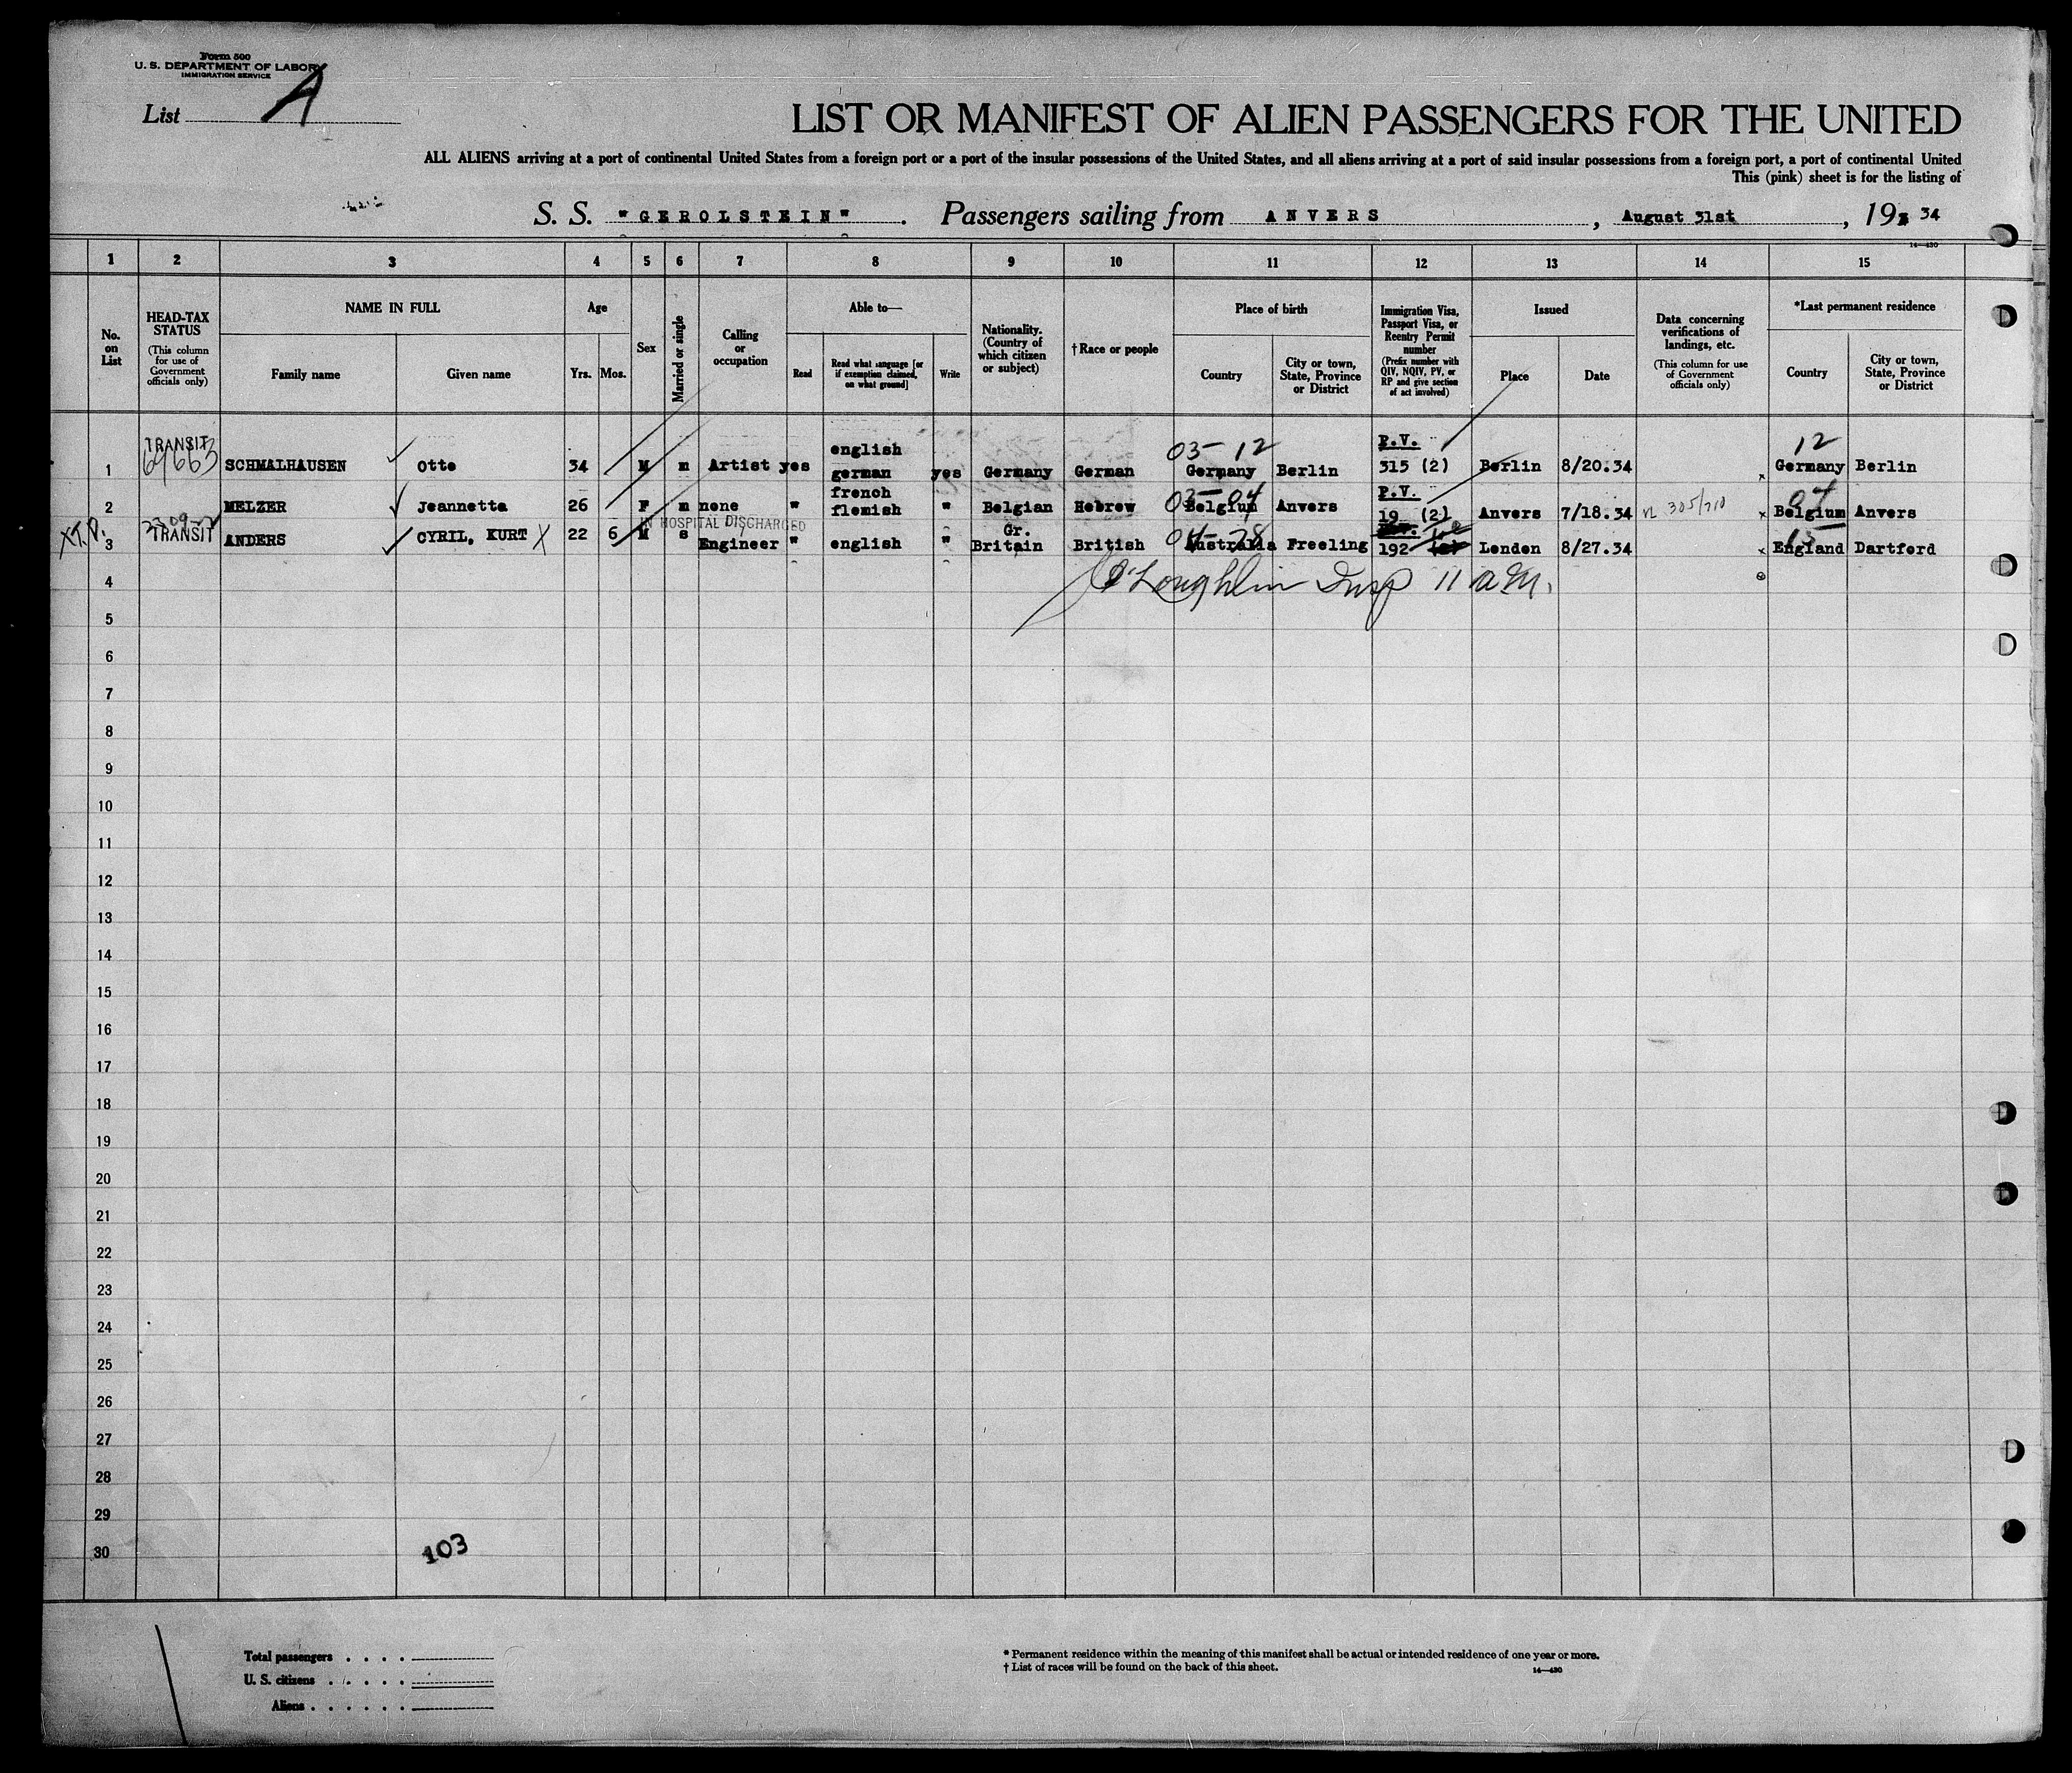 Form 500
U. S. DEPARTMENT OF LABOR
IMMIGRATION SERVICE
List A
LIST OR MANIFEST OF ALIEN PASSENGERS FOR THE UNITED
ALL ALIENS arriving at a port of continental United States from a foreign port or a port of the insular possessions of the United States, and all aliens arriving at a port of said insular possessions from a foreign port, a port of continental United
This (pink) sheet is for the listing of
S. S. "GEROLSTEIN". Passengers sailing from ANVERS, August 31st, 19 34
14—430
1 2 3 4 5 6 7 8 9 10 11 12 13 14 15
No. on List
HEAD-TAX STATUS
(This column for use of Government officials only)
NAME IN FULL
Family name
Given name
Age
Yrs. Mos.
Sex
Married or single
Calling or occupation
Able to—
Read
Read what language [or if exemption claimed, on what ground]
Write
Nationality. (Country of which citizen or subject)
† Race or people
Place of birth
Country
City or town, State, Province or District
Immigration Visa, Passport Visa, or Reentry Permit number
(Prefix number with QIV, NQIV, PV, or RP and give section of act involved)
Issued
Place
Date
Data concerning verifications of landings, etc.
(This column for use of Government officials only)
*Last permanent residence
Country
City or town, State, Province or District
TRANSIT english 03-12 P.V. 12
1 SCHMALHAUSEN Otto 34 M m Artist yes german yes Germany German Germany Berlin 315 (2) Berlin 8/20.34 x Germany Berlin
french P.V. 04
2 MELZER Jeannetta 26 F m none " flemish " Belgian Hebrew Belgium Anvers 19 (2) Anvers 7/18.34 x Belgium Anvers
IN HOSPITAL DISCHARGED
TRANSIT Gr.
3 ANDERS CYRIL, KURT X 22 6 M s Engineer " english " Britain British Australia Freeling 192 London 8/27.34 x England Dartford
O'Loughlin Insp 11 a.m.
4
5
6
7
8
9
10
11
12
13
14
15
16
17
18
19
20
21
22
23
24
25
26
27
28
29
30
103
Total passengers . . . .
U. S. citizens . . . . .
Aliens . . . . . .
* Permanent residence within the meaning of this manifest shall be actual or intended residence of one year or more.
† List of races will be found on the back of this sheet.
14—430